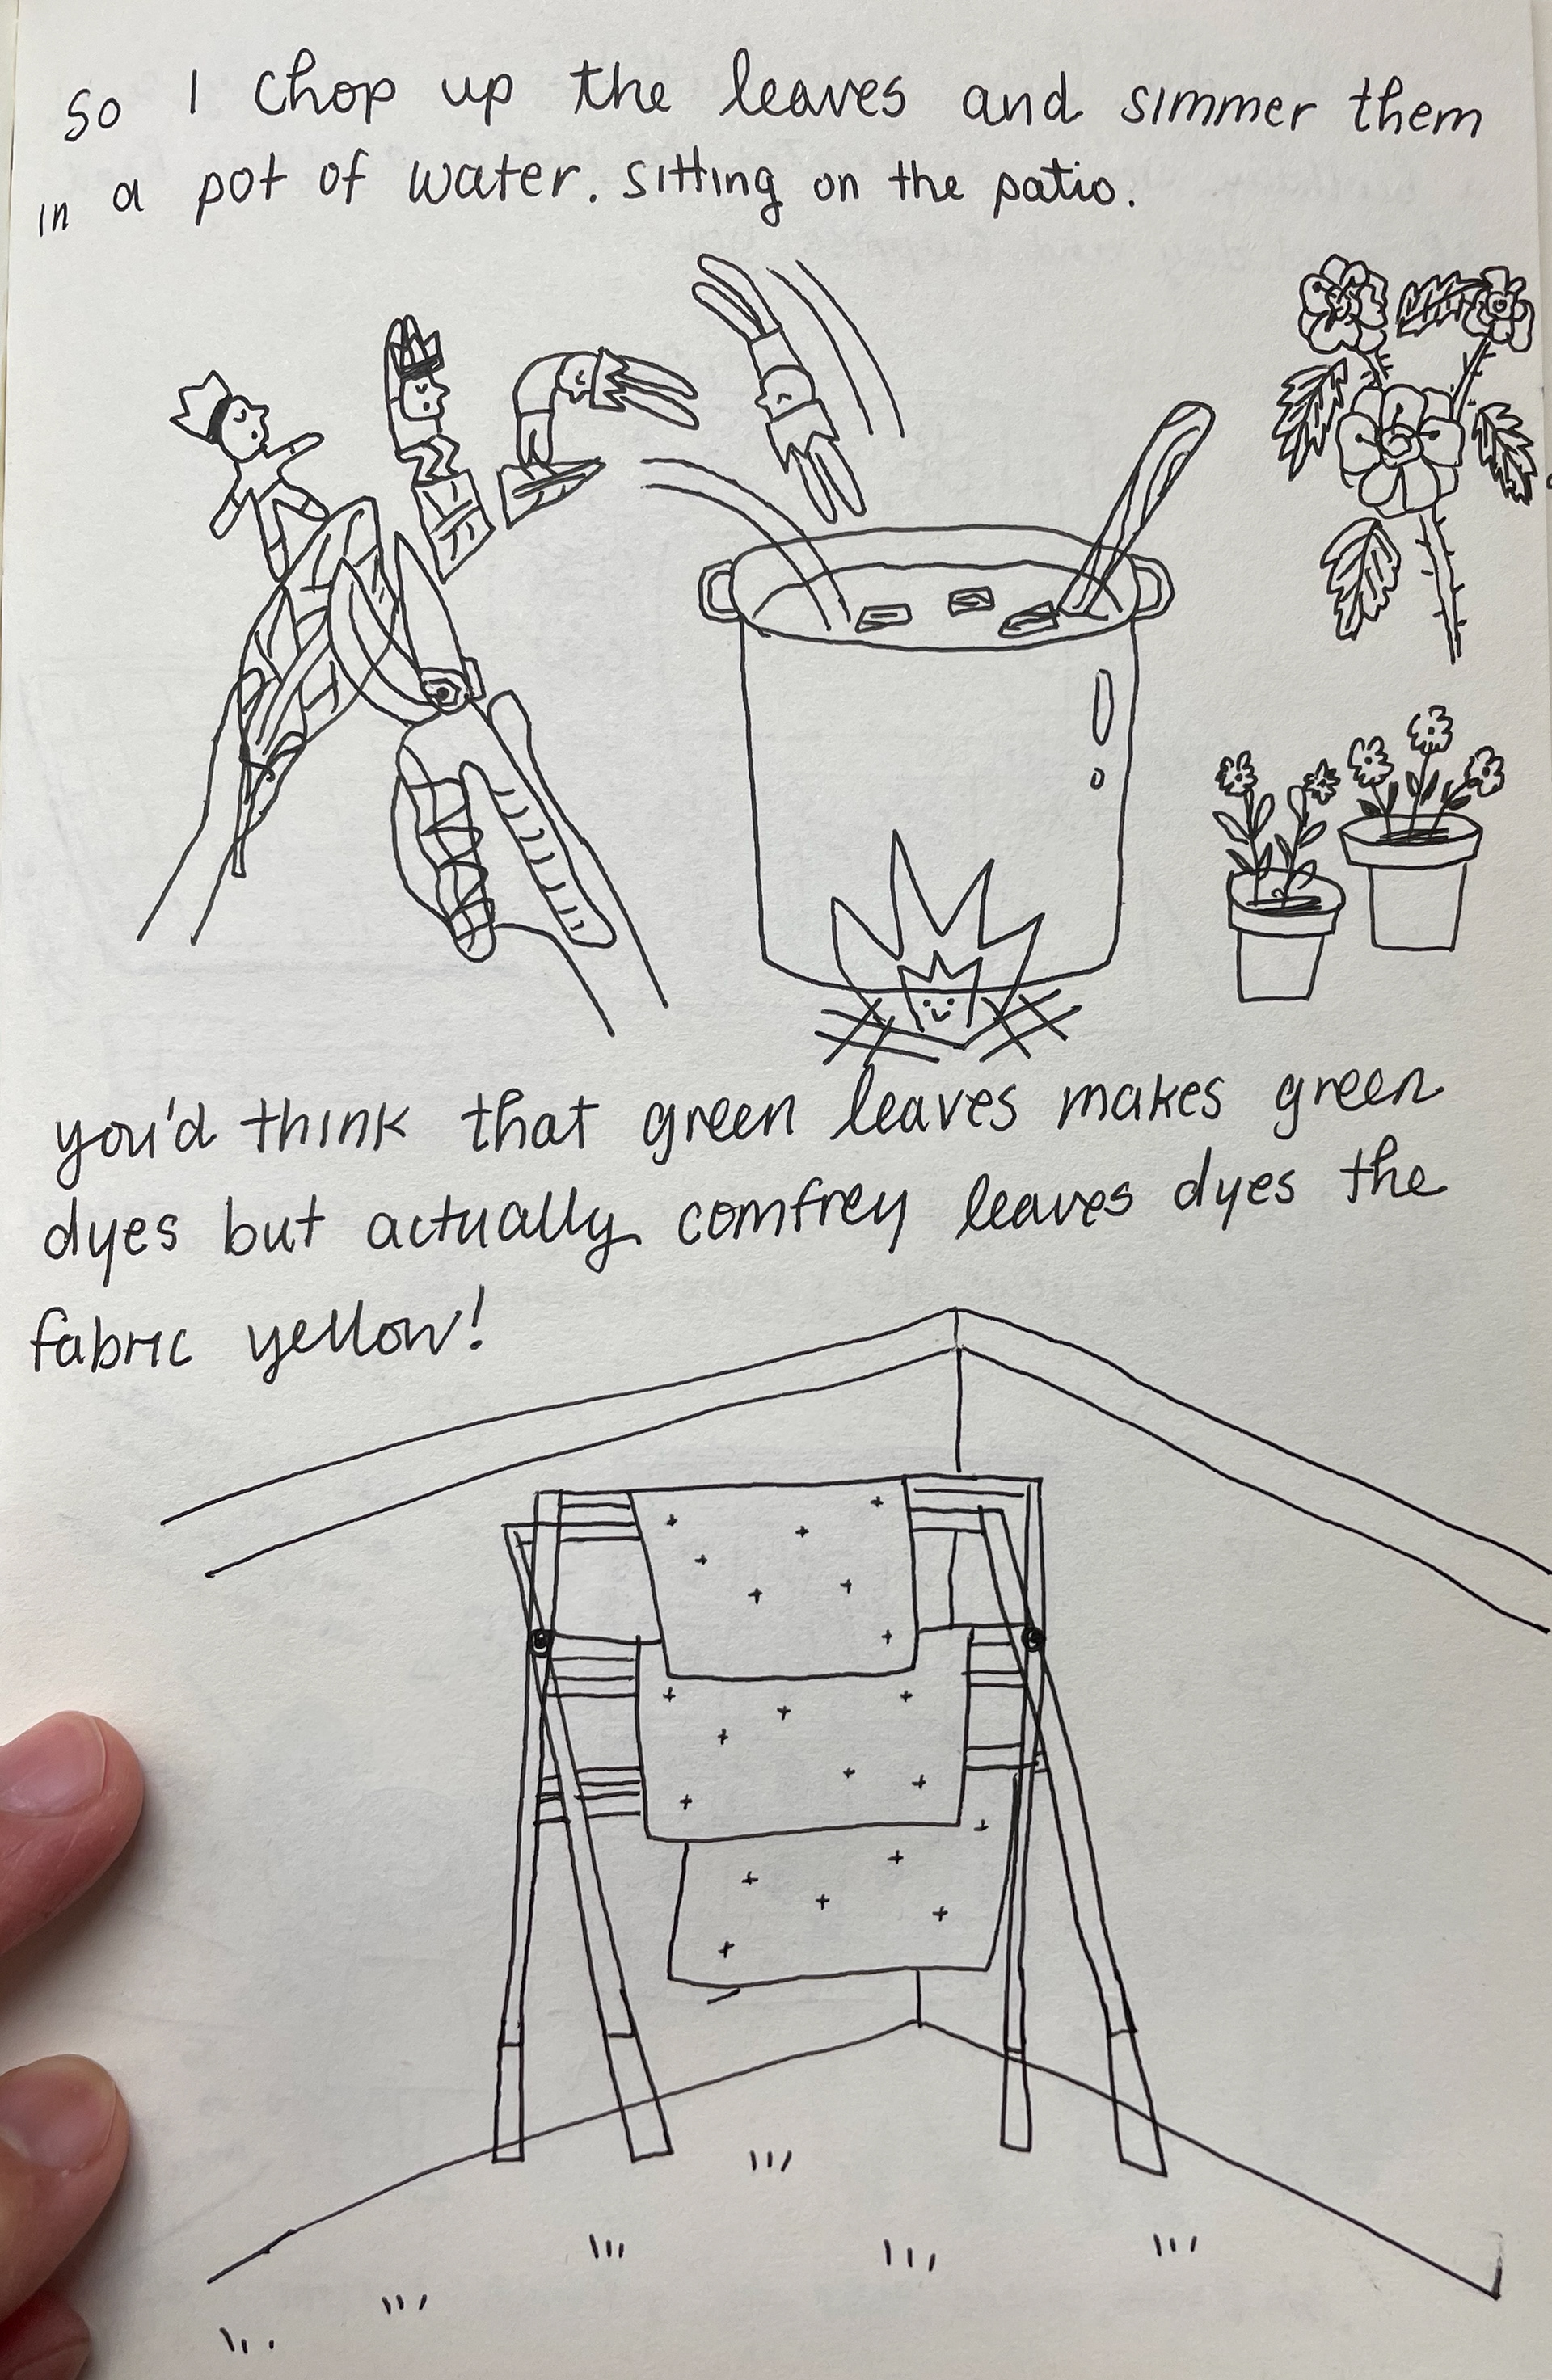 So I chop up the leaves and simmer them
in a pot of water. sitting on the patio.
you'd think that green leaves makes green
dyes but actually comfrey leaves dyes the
fabric yellow!